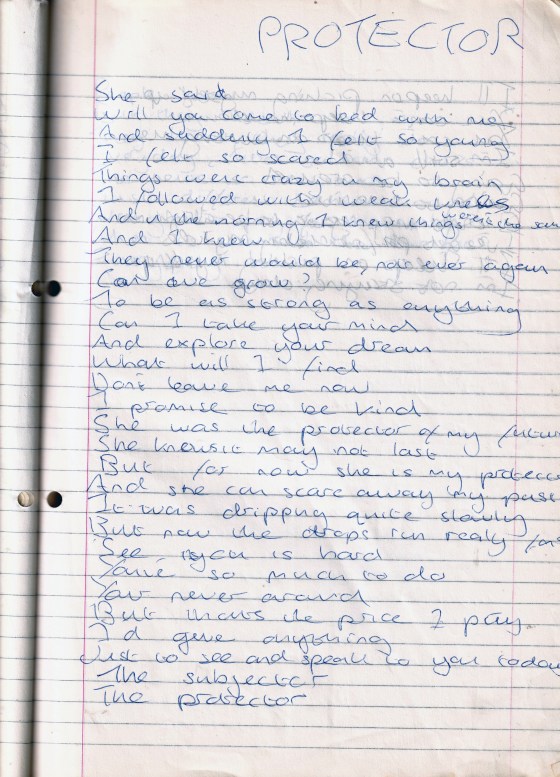 PROTECTOR
She said
Will you come to bed with me
And suddenly I felt so young
I felt so scared
Things went crazy in my brain
I followed with weak knees
And in the morning I knew things weren't the same
And I knew
They never would be, now ever again
Can we grow?
To be as strong as anything
Can I take your mind
And explore your dream
What will I find
Dont leave me now
I promise to be kind
She was the protector of my
She knew it may not last
But for now she is my protector
And she can scare away my past
It was dripping quite slowly
But now the drops run really
See you is hard
You've so much to do
Your never around
But thats the price I pay.
I'd give anything
Just to see and speak to you today
The subjector
The protector